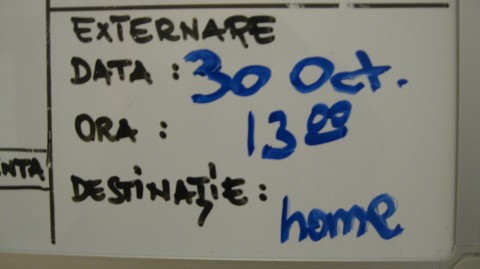 EXTERNARE
DATA : 30 Oct.
ORA : 13 00
NTA
DESTINAȚIE :
home